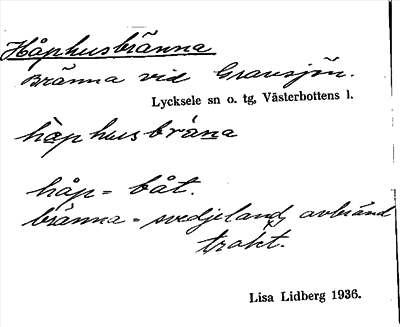 Håphusbränna
Bränna vid Gransjön.
Lycksele sn o. tg, Västerbottens l.
håphusbräna
håp = båt.
bränna = svedjeland, avbränd
trakt.
Lisa Lidberg 1936.